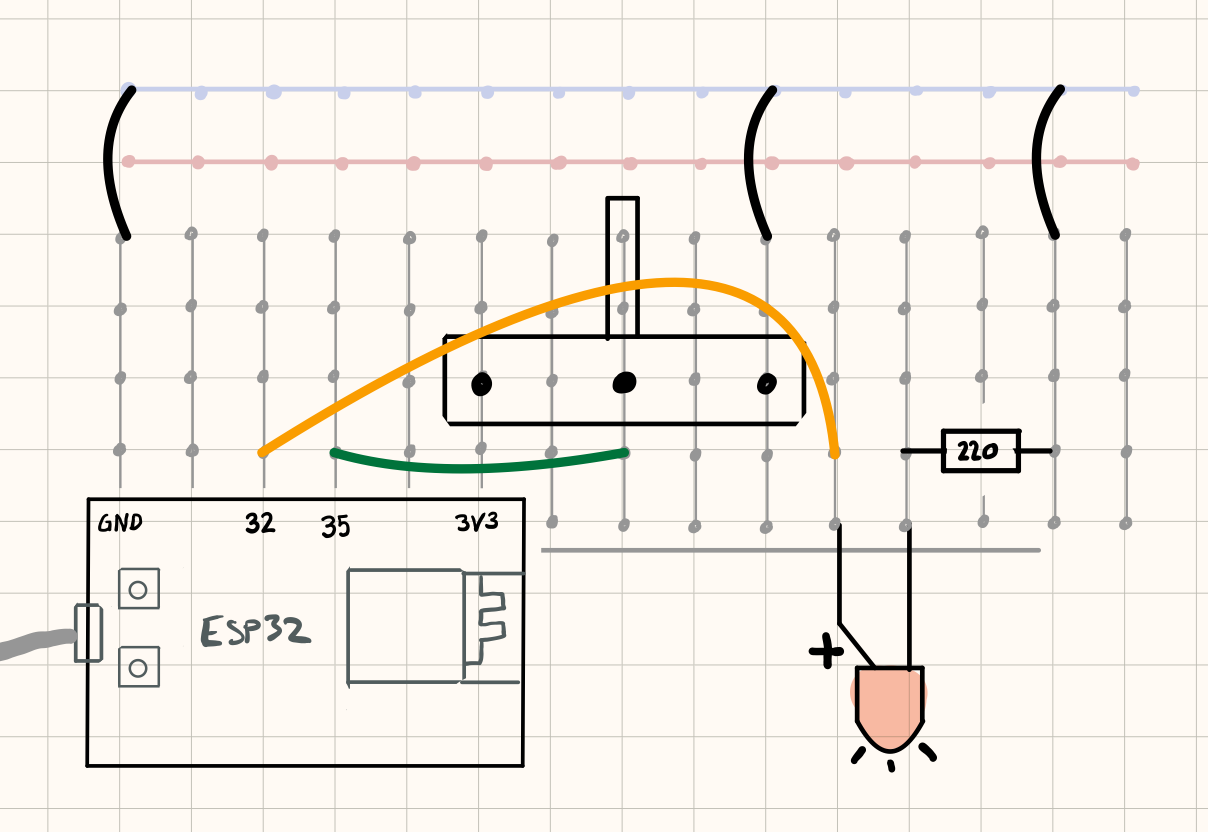 220
GND 32 35 3V3
ESP32
+